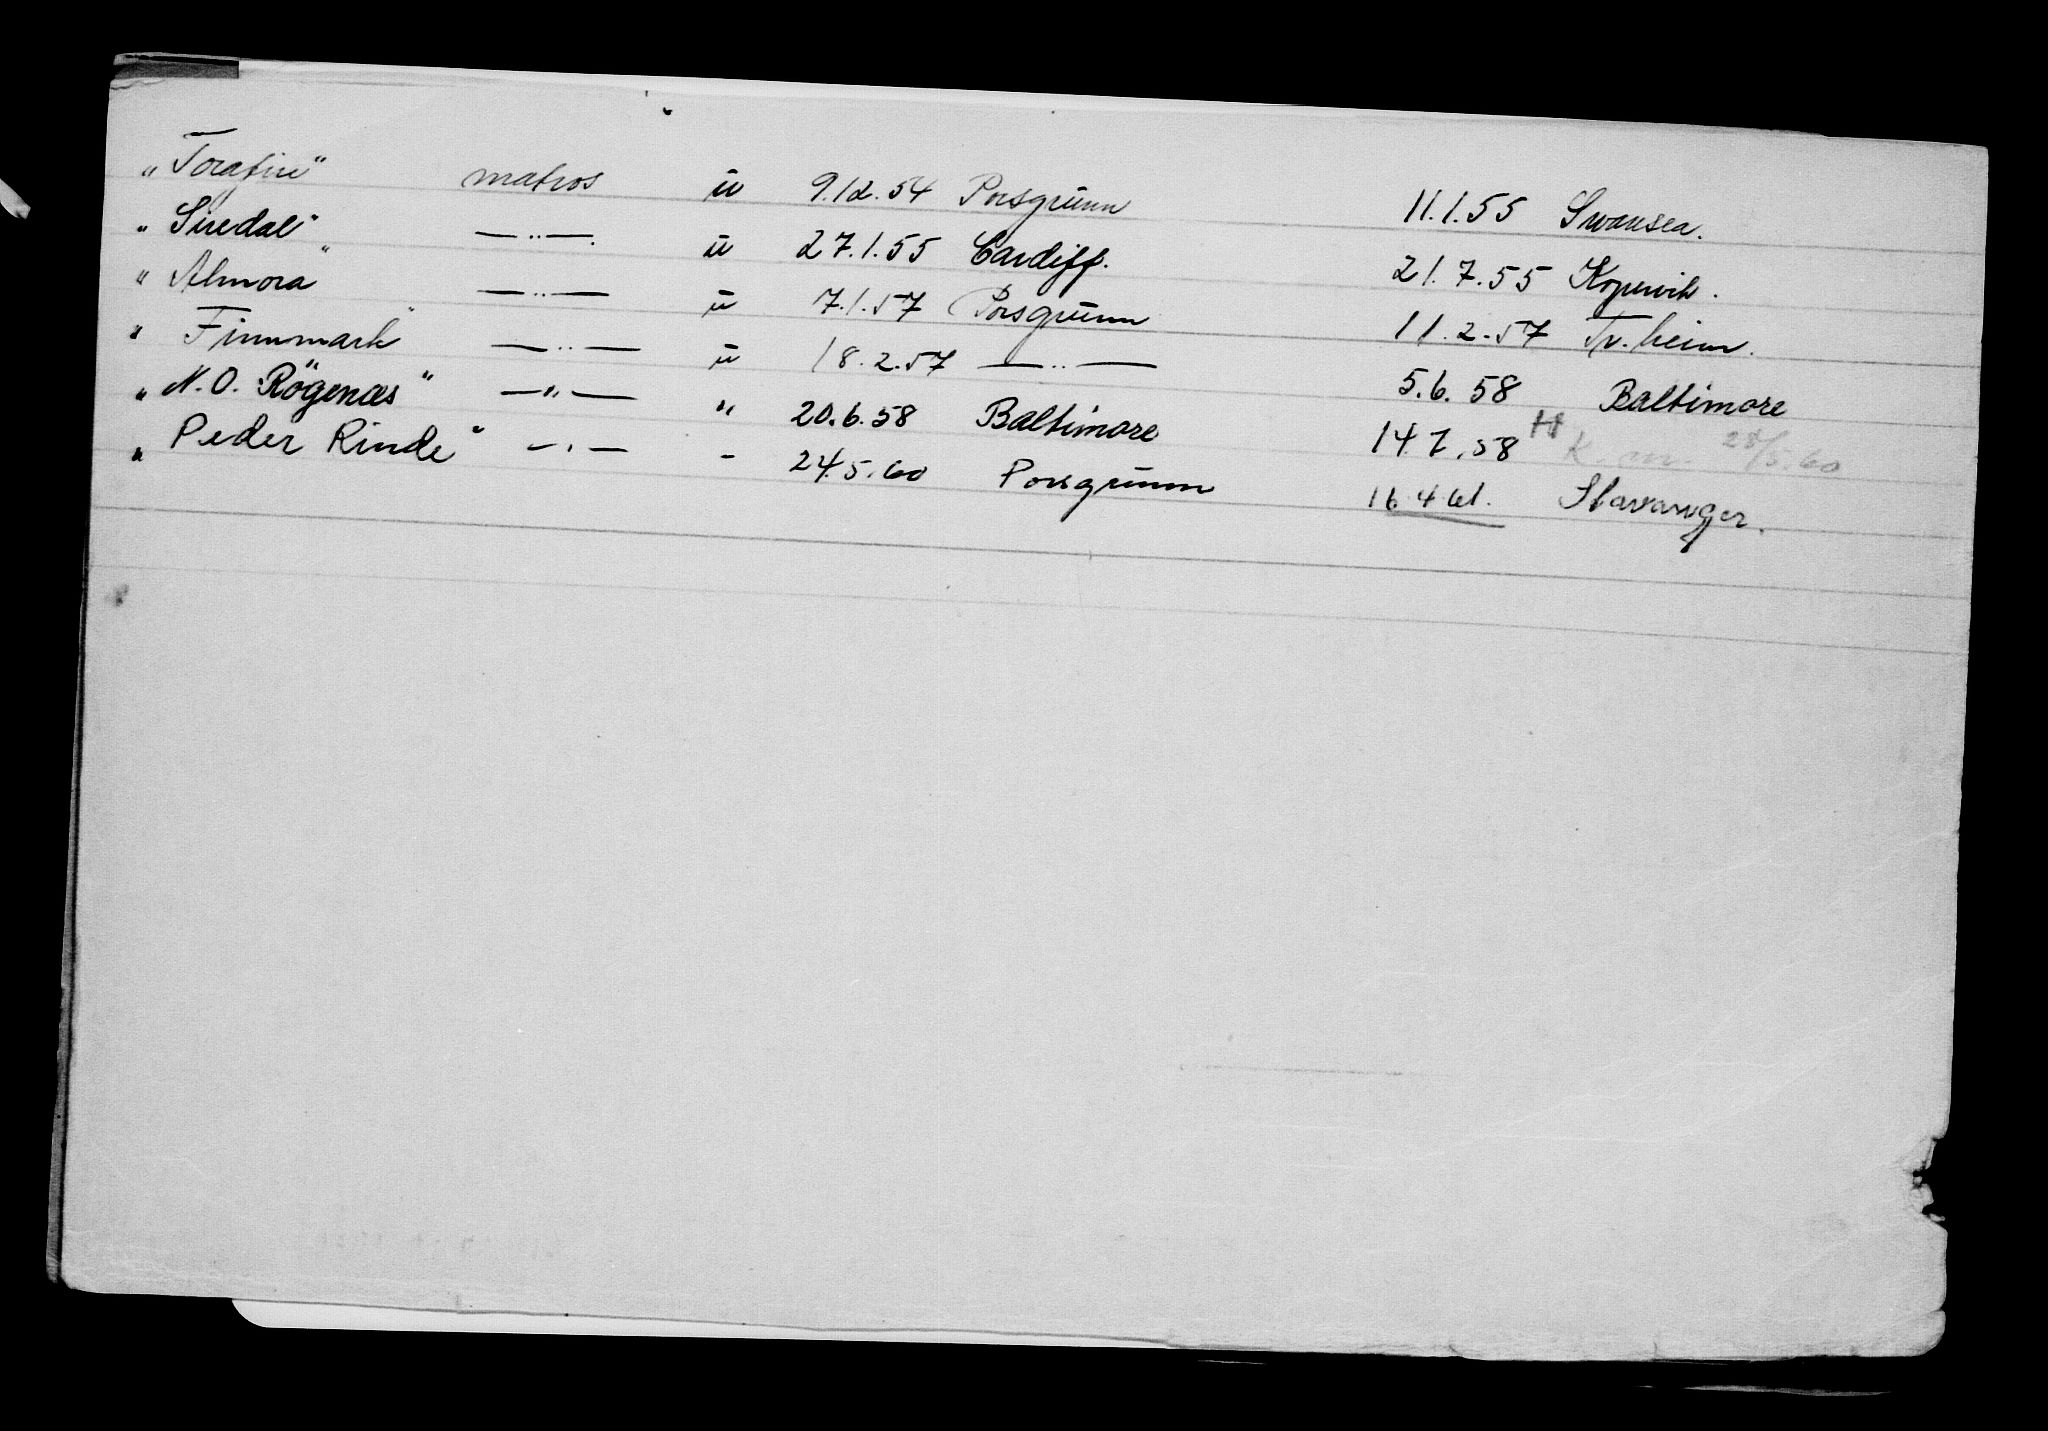 „Torafire“ matros ū 9.12.54 Porsgrūnn 11.1.55 Swansea.
„Siredal“ —..—. ū 27.1.55 Cardiff. 21.7.55 Kopervik.
„Almora“ —..— ū 7.1.57 Porsgrūnn 11.2.57 Tr.heim.
„Finnmark“ —..— ū 18.2.57 —..— 5.6.58 Baltimore
„N.O. Rögenæs“ —"— " 20.6.58 Baltimore 14.7.58 H K. 28/5.60
„Peder Rinde“ —.— - 24.5.60 Porsgrūnn 16.4.61. Stavanger.